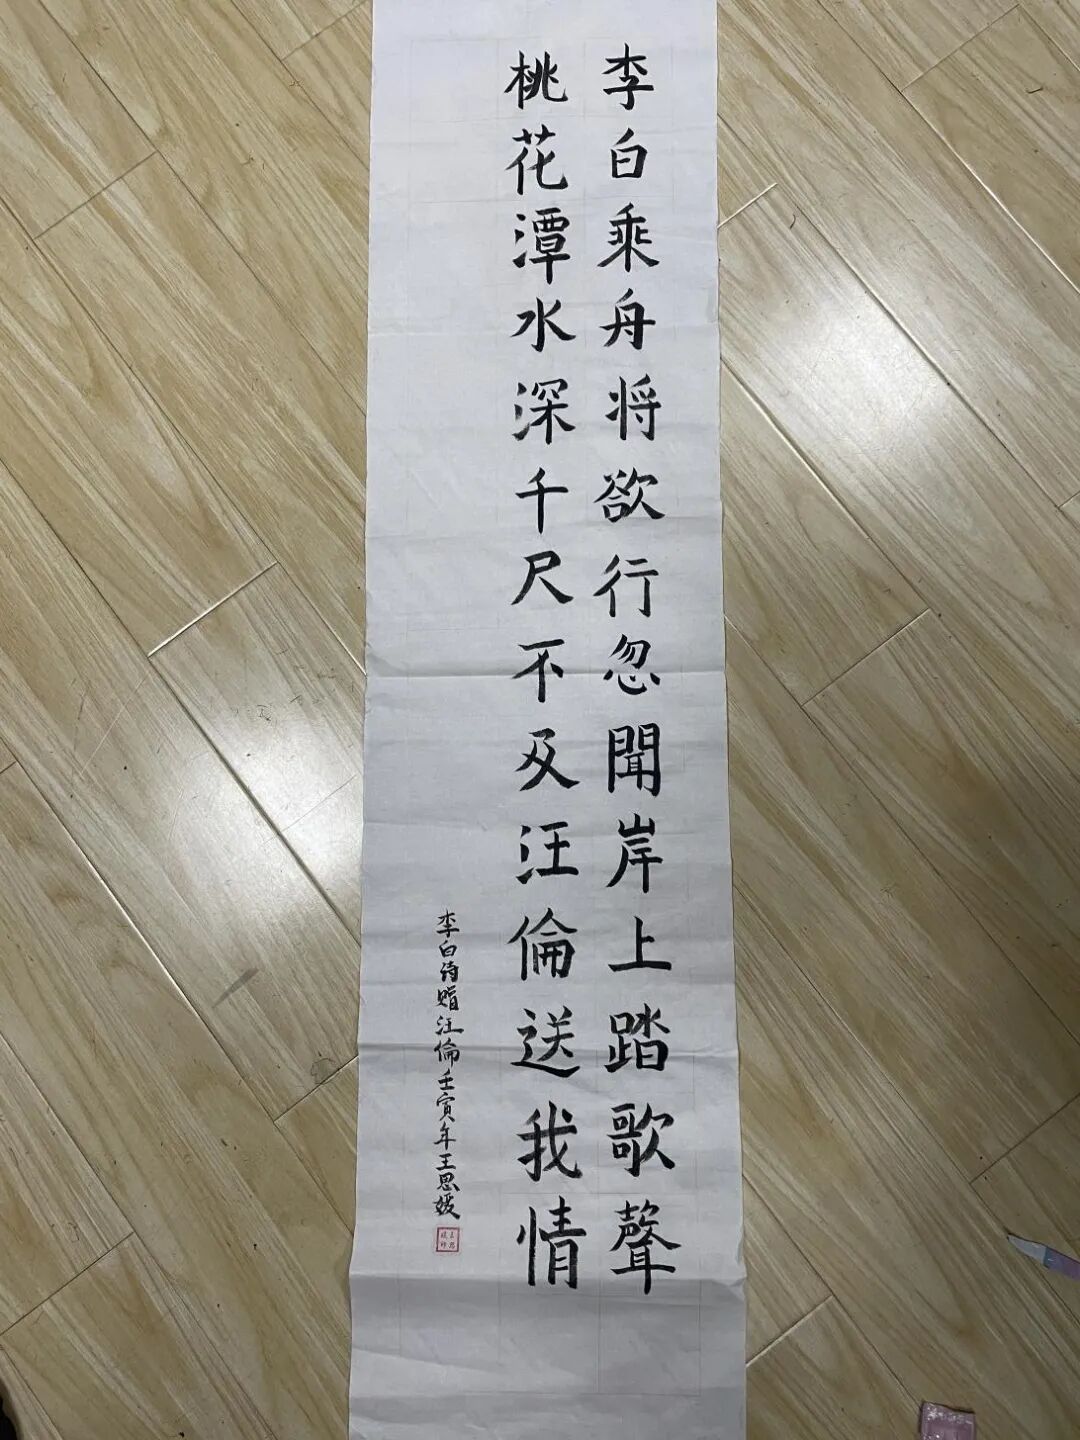 李白乘舟将欲行忽聞岸上踏歌聲
桃花潭水深千尺不及汪倫送我情
李白诗赠汪倫壬寅年王思媛